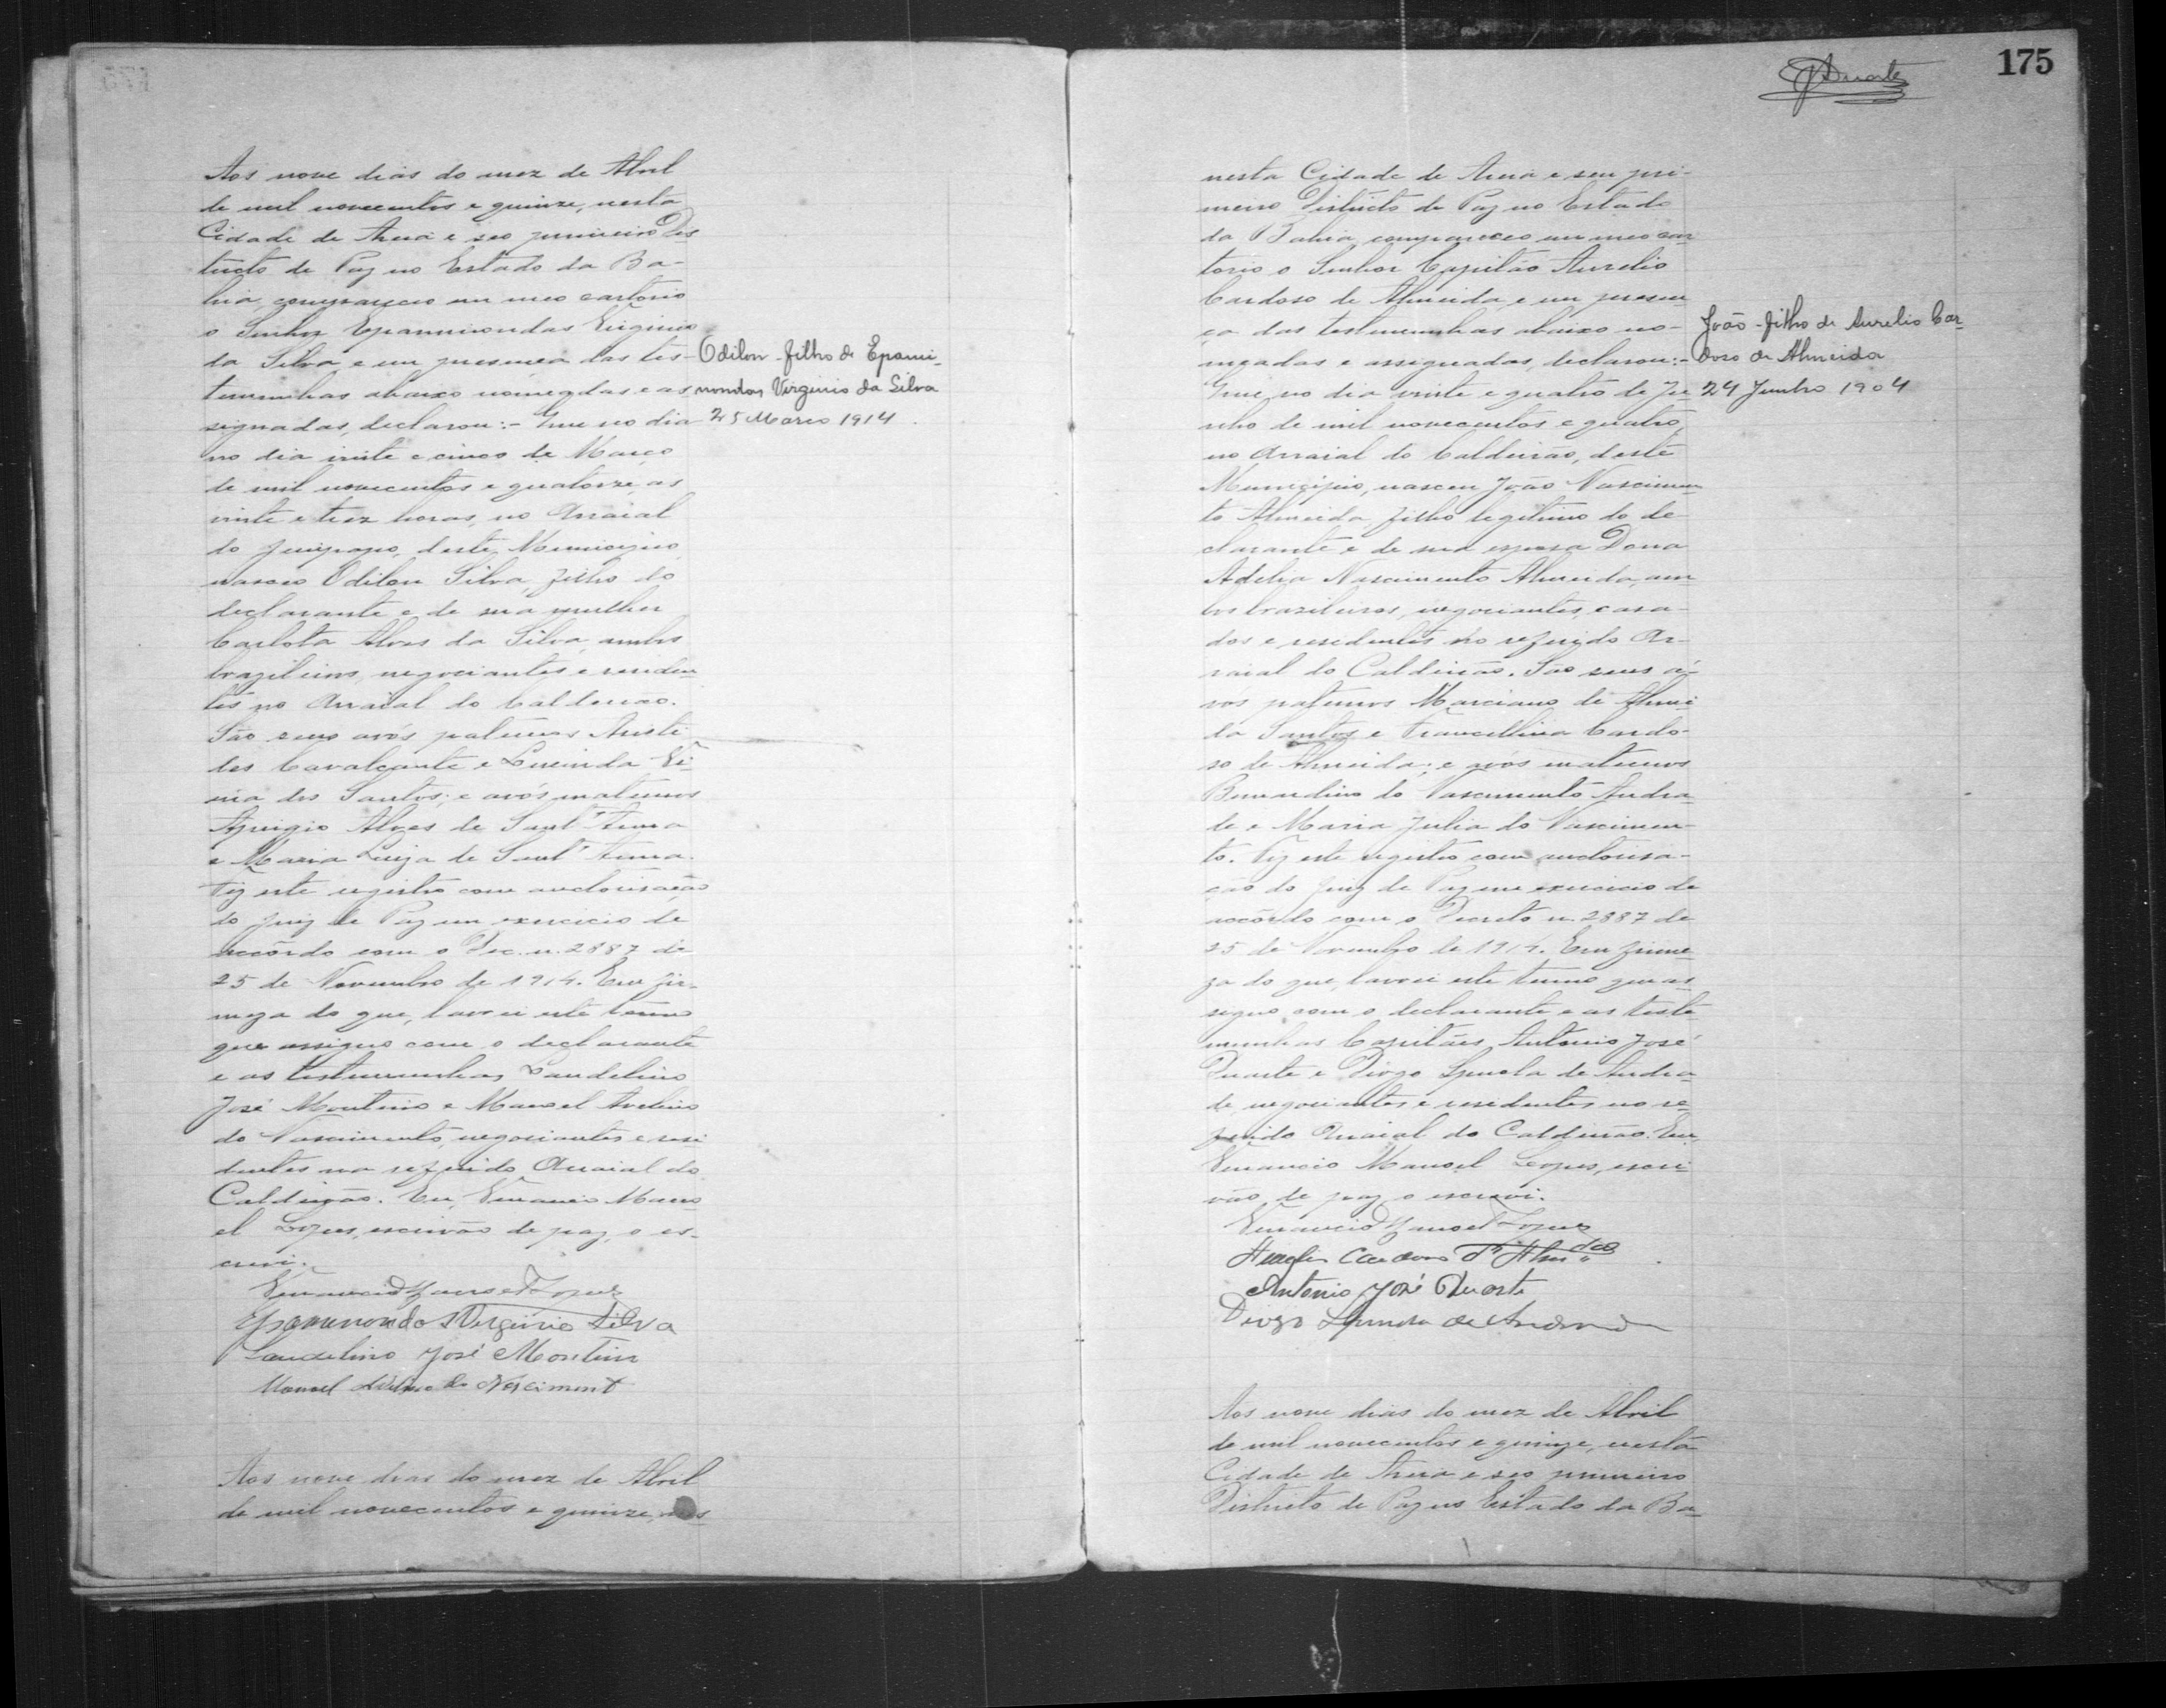 Aos nove dias do mez de Abril
de mil novecentos e quinze, nesta
Cidade de Areia e seo primeiro Dis
tricto de Paz no Estado da Ba-
hia, compareceo em meo cartorio
o Senhor Epaminondas Virginio
da Silva e em presença das tes-
temunhas abaixo nomeadas e as
signadas, declarou:- Que no dia
no dia vinte e cinco de Março
de mil novecentos e quatorze, as
vinte e trez horas, no Arraial
do Genipapo, deste Municipio,
nasceo Odilon Silva, filho do
declarante e de sua mulher
Carlota Alves da Silva, ambos
brazileiros, negociantes e residen
tes no Arraial do Caldeirão.
São seus avós paternos Aristi
des Cavalcante e Lucinda
dos Santos; e avós maternos
Aprigio Alves de Sant'Anna
e Maria Luiza de Sant'Anna.
Fiz este registro com auctorisação
do Juiz de Paz em exercicio de
accôrdo com o Dec. n. 2887 de
25 de Novembro de 1914. Em fir-
meza do que, lavrei este termo
que assigno com o declarante
e as testemunhas Laudelino
José Monteiro e Manoel Avelino
do Nascimento, negociantes e resi
dentes no referido Arraial do
Caldeirão. Eu, Venancio Mano
el Lopes, escrivão de paz, o es-
crevi.
Venancio Manoel Lopes
Epaminondas Virginio Silva
Laudelino José Monteiro
Manoel Avelino do Nasciment
Odilon - filho de Epami-
nondas Virginio da Silva
25 Março 1914
Aos nove dias do mez de Abril
de mil novecentos e quinze,
175
Duarte
nesta Cidade de Areia e seu pri-
meiro Districto de Paz no Estado
da Bahia, compareceo em meo car
torio o Senhor Capitão Aurelio
Cardoso de Almeida, e em presen
ça das testemunhas abaixo no-
meadas e assignadas, declarou:-
Que, no dia vinte e quatro de Ju
nho de mil novecentos e quatro,
no Arraial do Caldeirão, deste
Municipio, nasceu João Nascimen
to Almeida, filho legitimo do de-
clarante e de sua esposa Dona
Adelia Nascimento Almeida, am
bos brazileiros, negociantes, casa-
dos e residentes no referido Ar-
raial do Caldeirão. São seus a-
vós paternos Marciano de Almei
da Santos e Francellina Cardo-
so de Almeida; e avós maternos
Bernardino do Nascimento Andra
de e Maria Julia do Nascimen-
to. Fiz este registro com auctorisa-
ção do Juiz de Paz em exercicio de
accôrdo com o Decreto n. 2887 de
25 de Novembro de 1914. Em firme
za do que, lavrei este termo que as
signo com o declarante e as teste
munhas Capitães Antonio José
Duarte e Diogo Spinola de Andra
de, negociantes e residentes no re
ferido Arraial do Caldeirão. Eu,
Venancio Manoel Lopes, escri
vão de paz, o escrevi.
Venancio Manoel Lopes
Aurelio Cardoso d'Almda
Antonio José Duarte
Diogo Spinola de Andrade
João - filho de Aurelio Car-
doso de Almeida
24 Junho 1904
Aos nove dias do mez de Abril
de mil novecentos e quinze, nesta
Cidade de Areia e seo primeiro
Districto de Paz no Estado da Ba-